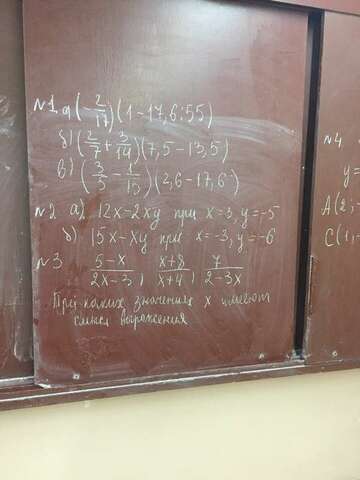 №1 а) (-2/17)(1-17,6:55)
б) (2/7+3/14)(7,5-13,5)
в) (3/5-1/15)(2,6-17,6)
№2 а) 12x=2xy при x=3, y=-5
б) 15x-xy при x=-3, y=-6
№3 5-x/2x-3, x+8/x+4, 7/2-3x
При каких значениях x имеют
смысл выражения
№4
y=
A(2;-
C(1,-